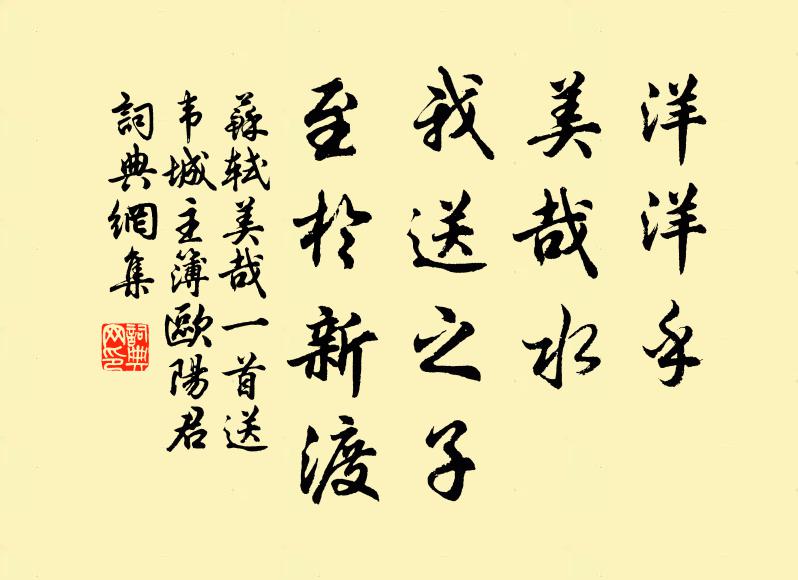 洋洋乎
美哉水
我送之子
至於新渡
蘇軾美哉一首送
韦城主簿歐陽君
詞典網集
詞典网印